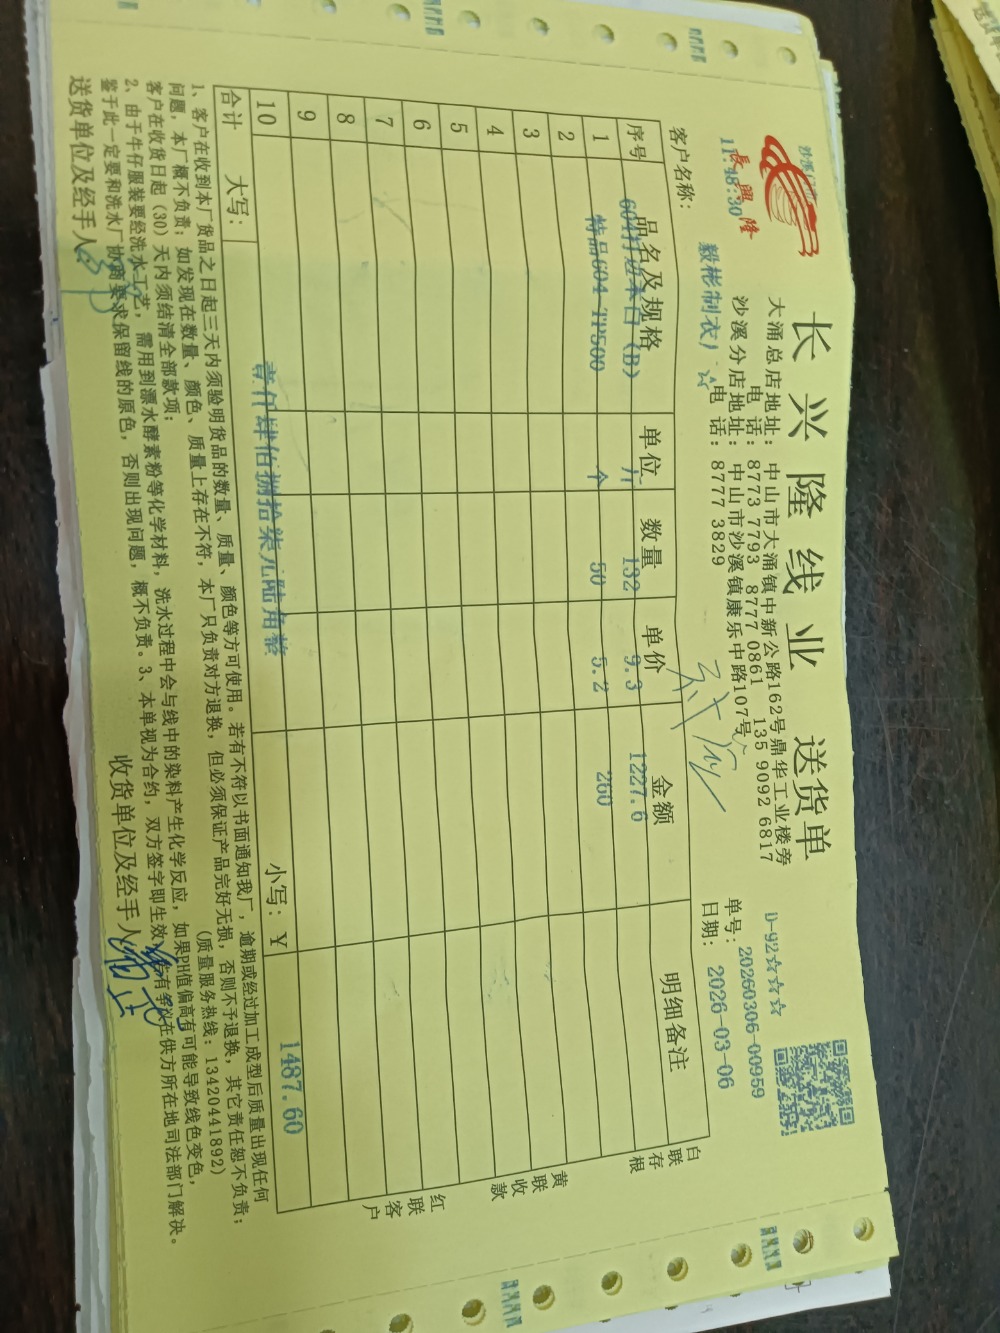 长兴隆线业 送货单
長興隆
11:48:30
大涌总店地址: 中山市大涌镇中新公路162号鼎华工业楼旁
电 话: 8773 7793 8777 0861 135 9092 6817
沙溪分店地址: 中山市沙溪镇康乐中路107号
电 话: 8777 3829
D-92☆☆☆
单号: 20260306-00959
日期: 2026-03-06
客户名称: 毅彬制衣厂 ☆
序号 品名及规格 单位 数量 单价 金额 明细备注
604打边本白(B) 斤 132 9.3 1227.6
1 特品604-TP500 个 50 5.2 260
2
3
4
5
6
7
8
9
10
合计 大写: 壹仟肆佰捌拾柒元陆角整 小写: ¥ 1487.60
白联存根
黄联收款
红联客户
1、客户在收到本厂货品之日起三天内须验明货品的数量、质量、颜色等方可使用。若有不符以书面通知我厂,逾期或经过加工成型后质量出现任何
问题,本厂概不负责;如发现在数量、颜色、质量上存在不符,本厂只负责对方退换,但必须保证产品完好无损,否则不予退换,其它责任恕不负责;
客户在收货日起(30)天内须结清全部款项; (质量服务热线:13420441892)
2、由于牛仔服装要经洗水工艺,需用到漂水酵素粉等化学材料,洗水过程中会与线中的染料产生化学反应,如果PH值偏高有可能导致线色变色,
鉴于此一定要和洗水厂协商要求保留线的原色,否则出现问题,概不负责。3、本单视为合约,双方签字即生效,若有争议在供方所在地司法部门解决。
送货单位及经手人 收货单位及经手人